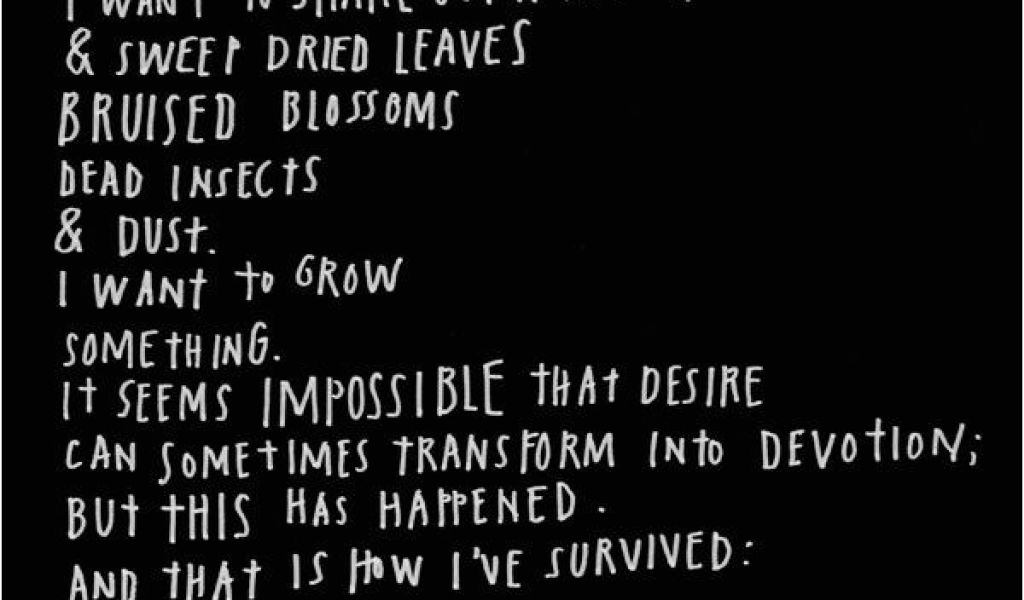 I WANT TO SHAKE OUT
& SWEEP DRIED LEAVES
BRUISED BLOSSOMS
DEAD INSECTS
& DUST.
I WANT TO GROW
SOMETHING.
IT SEEMS IMPOSSIBLE THAT DESIRE
CAN SOMETIMES TRANSFORM INTO DEVOTION;
BUT THIS HAS HAPPENED.
AND THAT IS HOW I'VE SURVIVED: